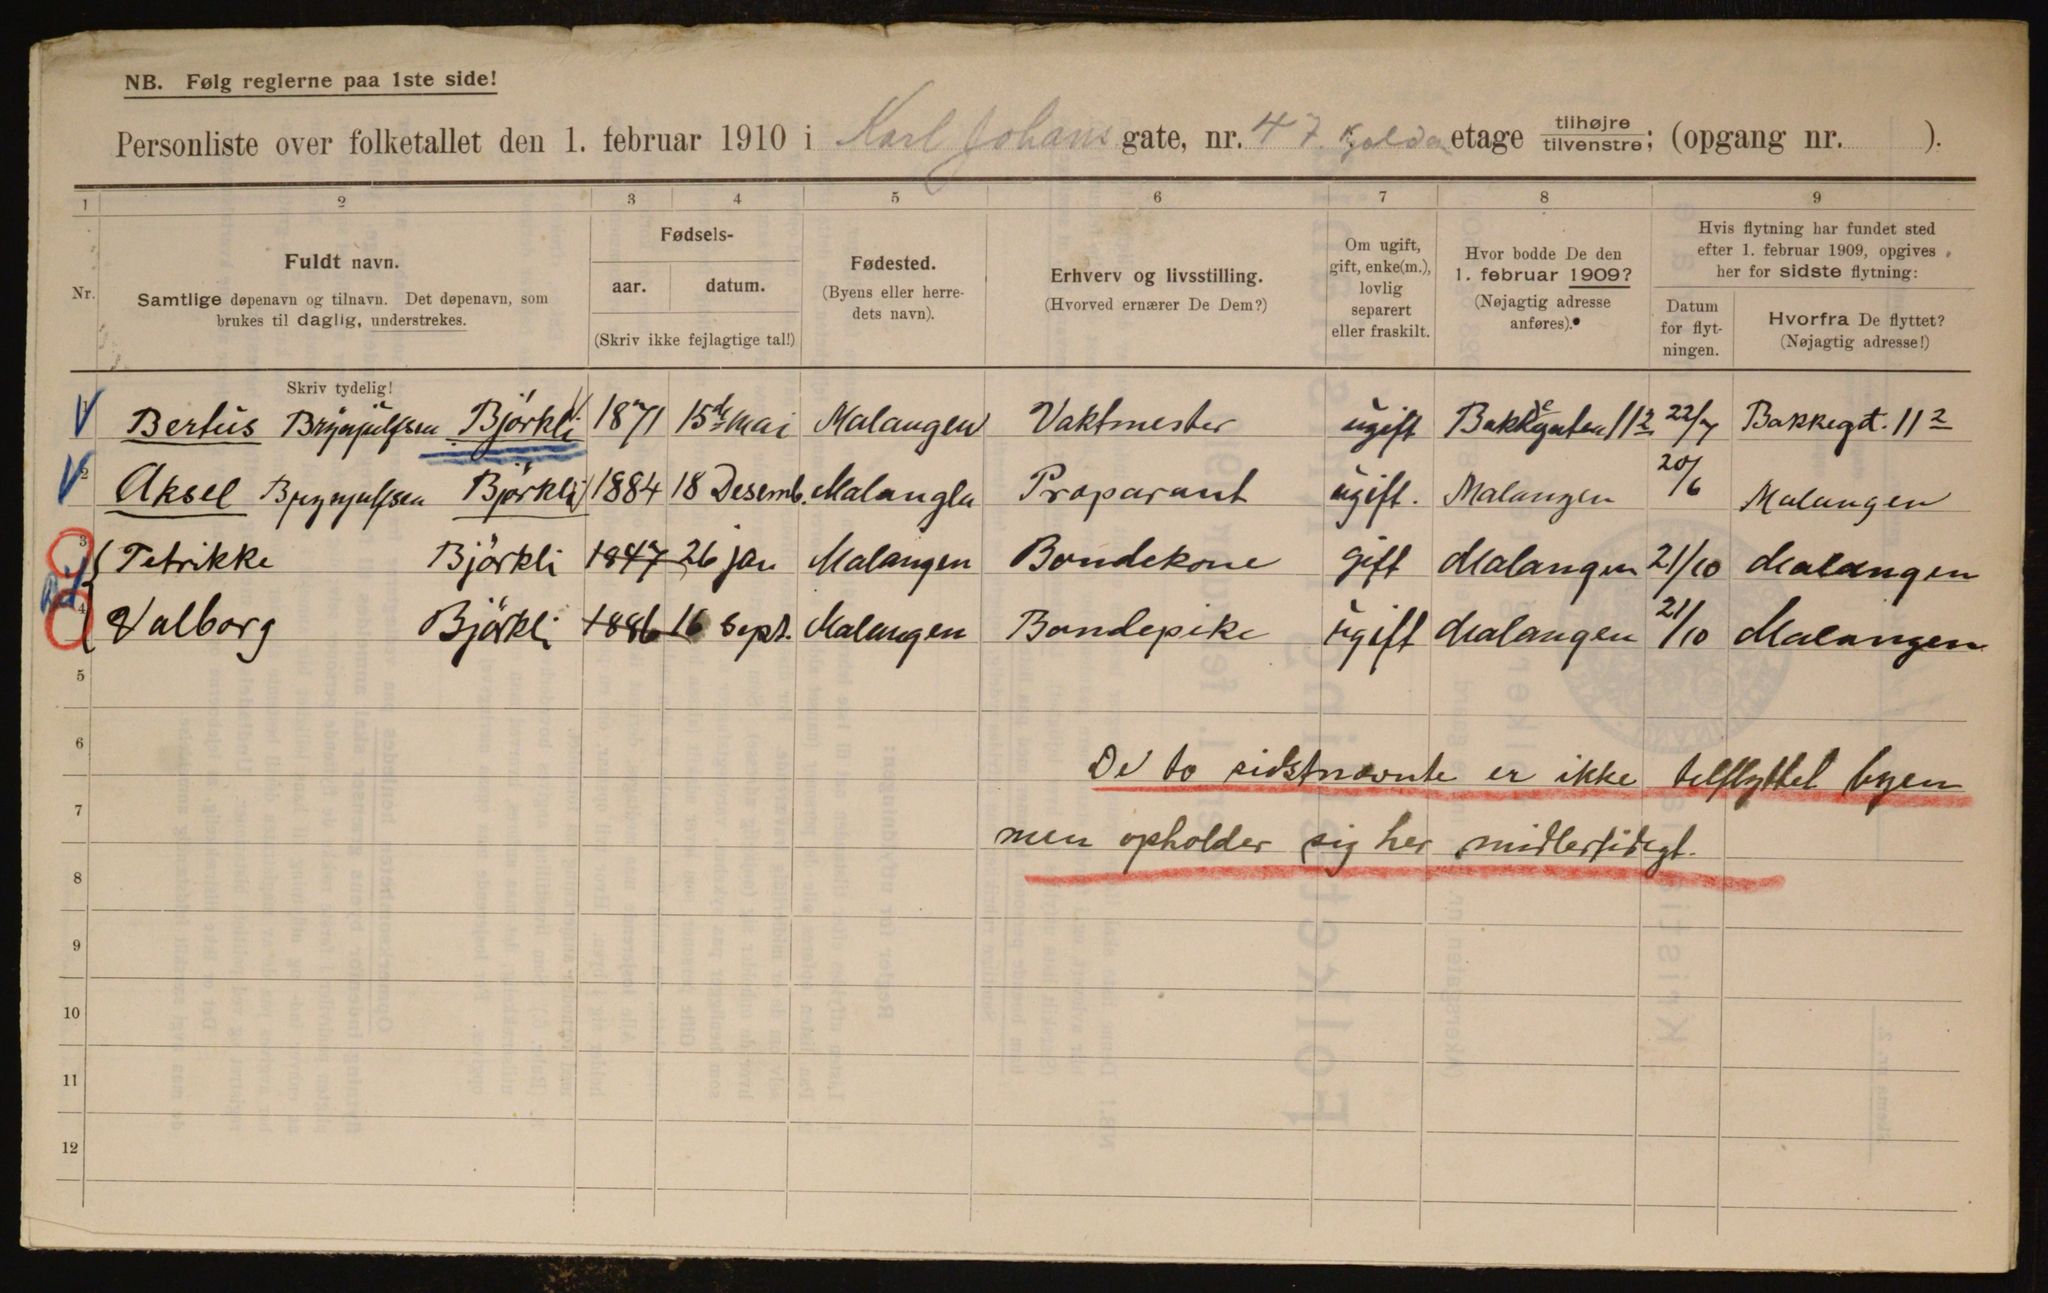 NB. Følg reglerne paa 1ste side!
Personliste over folketallet den 1. februar 1910 i Karl Johans gate, nr. 47 Kjelder etage tilhøjre/tilvenstre; (opgang nr. ).
1 2 3 4 5 6 7 8 9
Nr.
Fuldt navn.
Samtlige døpenavn og tilnavn. Det døpenavn, som
brukes til daglig, understrekes.
Skriv tydelig!
Fødsels-
aar. datum.
(Skriv ikke fejlagtige tal!)
Fødested.
(Byens eller herre-
dets navn).
Erhverv og livsstilling.
(Hvorved ernærer De Dem?)
Om ugift,
gift, enke(m.),
lovlig
separert
eller fraskilt.
Hvor bodde De den
1. februar 1909?
(Nøjagtig adresse
anføres).
Hvis flytning har fundet sted
efter 1. februar 1909, opgives
her for sidste flytning:
Datum
for flyt-
ningen.
Hvorfra De flyttet?
(Nøjagtig adresse!)
1 Bertus Brynjulfsen Björkli 1871 15de mai Malangen Vaktmester ugift Bakkegaten 11 2 22/7 Bakkegt. 11 2
2 Aksel Brynjulfsen Björkli 1884 18 Desemb. Malangen Præparant ugift. Malangen 20/6 Malangen
3 Petrikke Björkli 1847 26 jan Malangen Bondekone gift Malangen 21/10 Malangen
4 Valborg Björkli 1886 16 Sept. Malangen Bondepike ugift Malangen 21/10 Malangen
5
6
De to sidstnævnte er ikke tilflyttet byen
7
men opholder sig her midlertidigt.
8
9
10
11
12